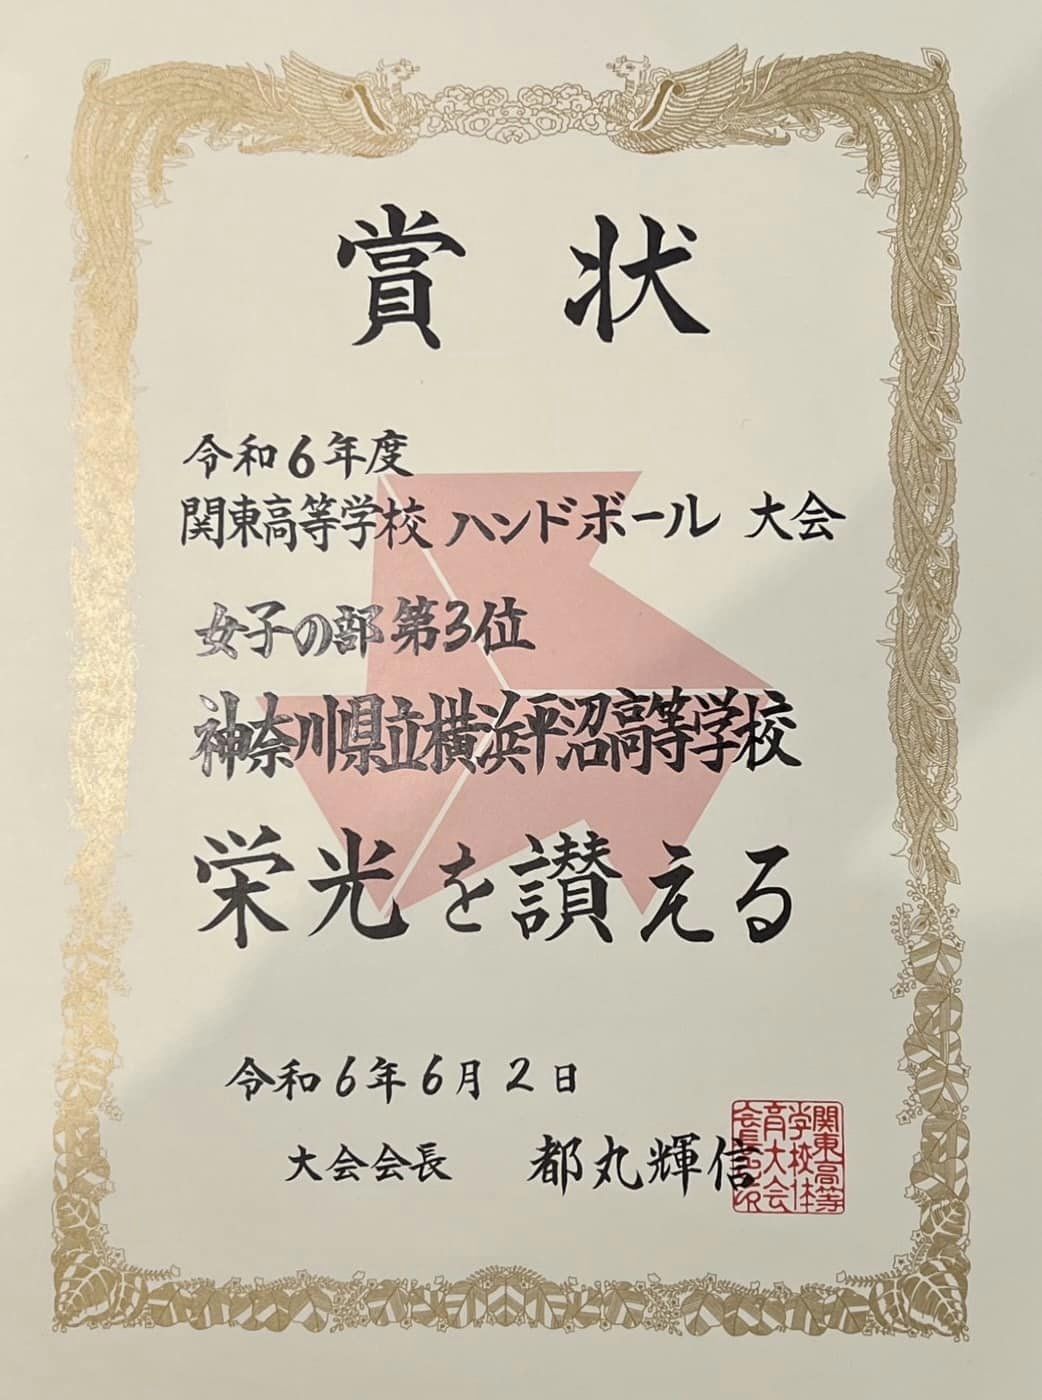 賞状
令和6年度
関東高等学校 ハンドボール 大会
女子の部第3位
神奈川県立横浜平沼高等学校
栄光を讃える
令和6年6月2日
大会会長 都丸輝信
関東高等
学校体
育大会
会長之印